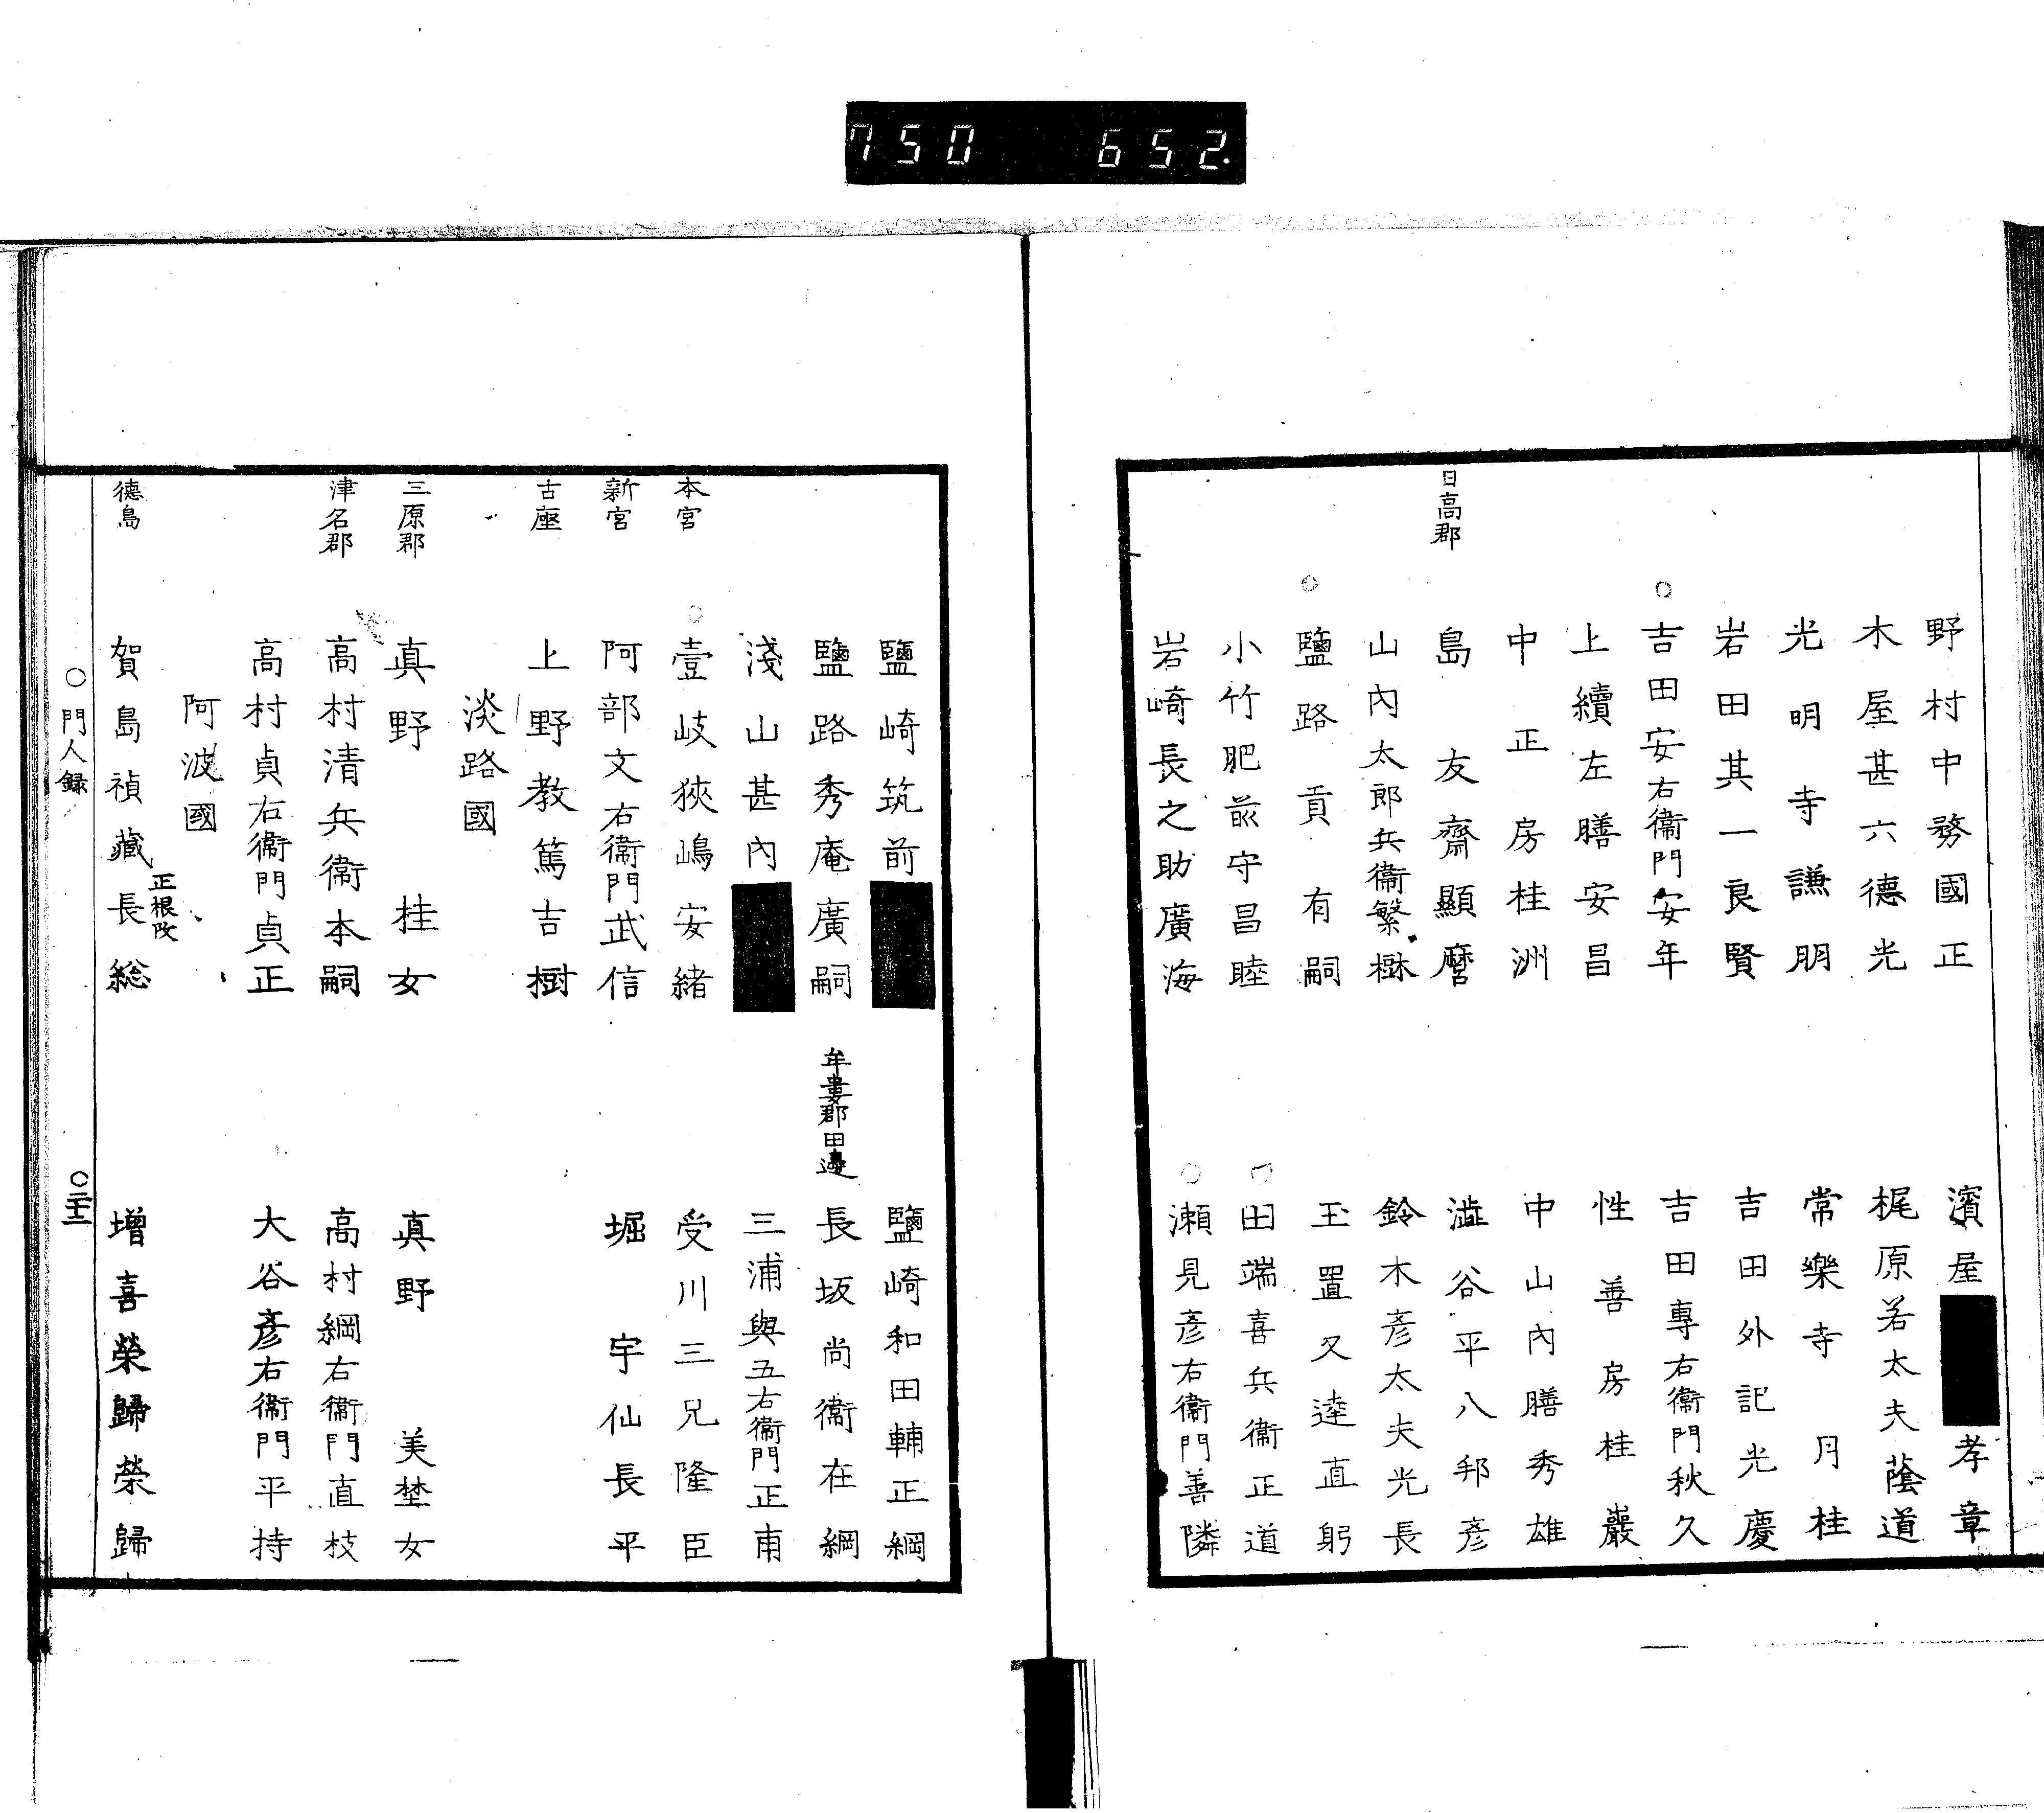 750 652.
野村中務國正
濱屋■孝章
木屋甚六德光
梶原若太夫蔭道
光明寺謙明
常樂寺月桂
岩田其一良賢
吉田外記光慶
○吉田安右衞門安年
吉田專右衞門秋久
上續左膳安昌
性善房桂巖
中正房桂洲
中山內膳秀雄
日高郡
島友齋顯麿
澁谷平八邦彥
山內太郎兵衞繁樾
鈴木彥太夫光長
○鹽路貢有嗣
玉置久達直躬
小竹肥前守昌睦
田端喜兵衞正道
岩崎長之助廣海
○瀨見彥右衞門善隣
鹽崎筑前■
鹽崎和田輔正綱
鹽路秀庵廣嗣
牟婁郡田邊
長坂尚衞在綱
淺山甚內■
三浦與五右衞門正甫
本宮
○壹岐狹嶋安緒
受川三兄隆臣
新宮
阿部文右衞門武信
堀宇仙長平
古座
上野教篤吉樹
淡路國
三原郡
真野桂女
真野美埜女
津名郡
高村清兵衞本嗣
高村綱右衞門直枝
高村貞右衞門貞正
大谷彥右衞門平持
阿波國
德島
賀島禎藏長総
正根改
增喜榮歸榮歸
○門人録
○二十三